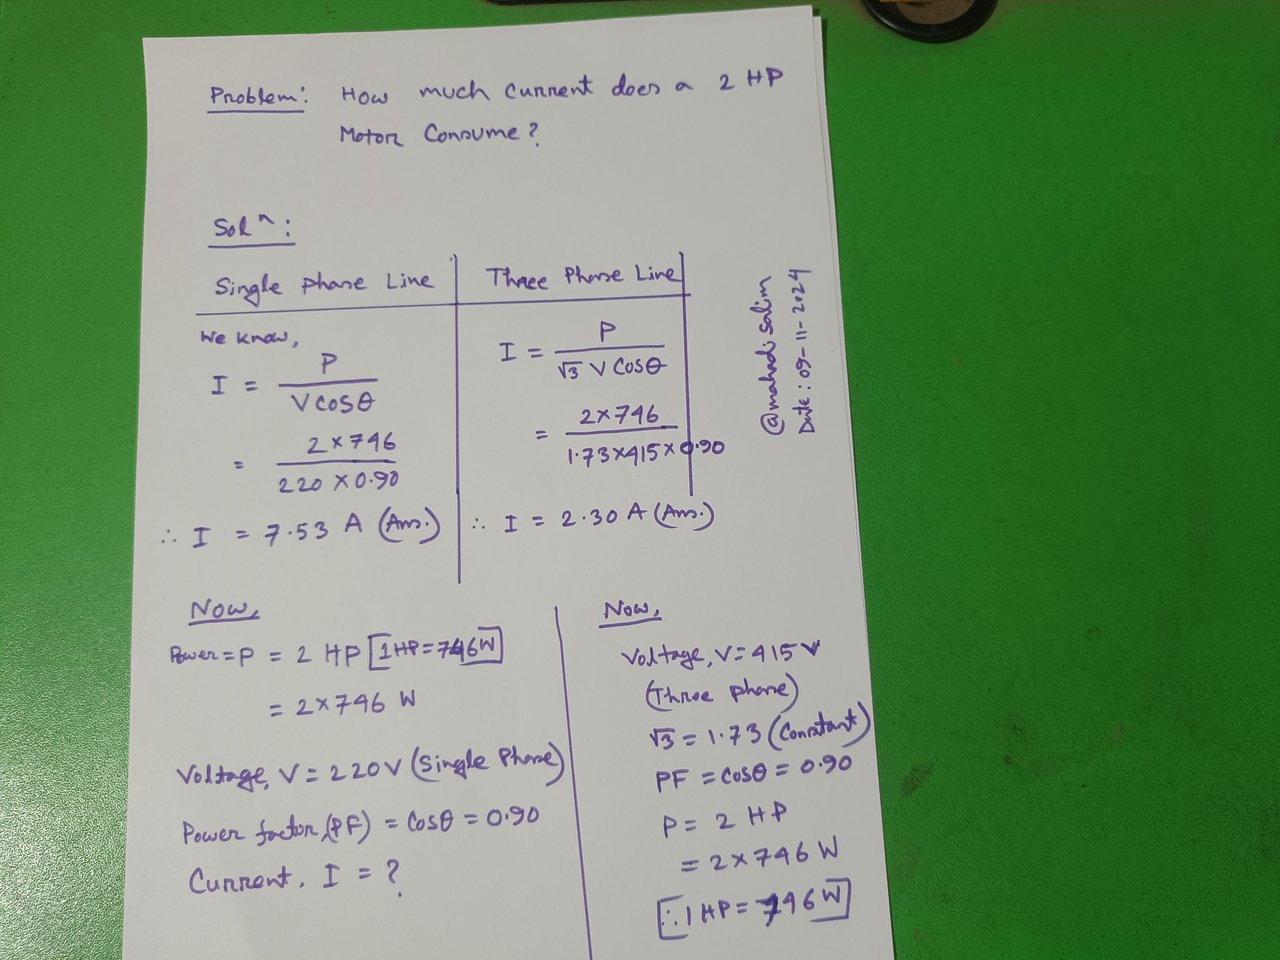 Problem: How much current does a 2 HP
Motor Consume?
Solⁿ:
Single phase Line
We know,
I = P / V cosθ
= 2×746 / 220×0.90
∴ I = 7.53 A (Ans.)
Three Phase Line
I = P / √3 V cosθ
= 2×746 / 1.73×415×0.90
∴ I = 2.30 A (Ans.)
@mahadi salim
Date: 09-11-2024
Now,
Power = P = 2 HP [1HP=746W]
= 2×746 W
Voltage, V = 220V (Single Phase)
Power factor, (PF) = cosθ = 0.90
Current, I = ?
Now,
Voltage, V = 415 V
(Three phase)
√3 = 1.73 (Constant)
PF = cosθ = 0.90
P = 2 HP
= 2×746 W
[∴ 1 HP = 746 W]